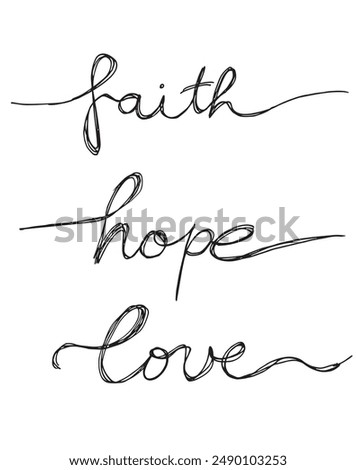 faith
hope
love
shutterstock
IMAGE ID: 2490103253
www.shutterstock.com